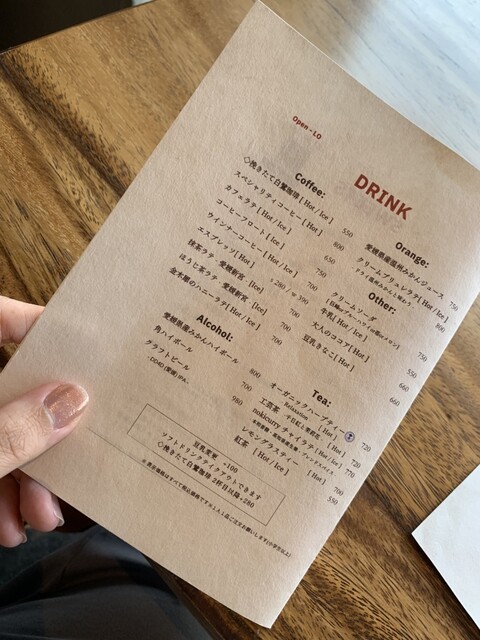 Open - LO
DRINK
Coffee:
◇挽きたて白鷺珈琲 [ Hot / Ice ] 550
スペシャリティコーヒー [ Hot ] 800
カフェラテ [ Hot / Ice ] 650
コーヒーフロート [ Ice ] 750
ウインナーコーヒー [ Hot / Ice ] 700
エスプレッソ [ Hot ] s 280 / w 390
抹茶ラテ -愛媛新宮 [ Hot / Ice ] 700
ほうじ茶ラテ -愛媛新宮 [ Hot / Ice ] 700
金木犀のハニーラテ [ Hot / Ice ]
Alcohol:
愛媛県産みかんハイボール 800
角ハイボール 700
クラフトビール 980
: DD4D (愛媛) IPA :
Orange:
愛媛県産温州みかんジュース 750
クリームブリュレラテ [ Hot ] 800
- ドライ温州みかんと味わう
Other:
クリームソーダ 750
牛乳 [ Hot / Ice ] 550
大人のココア [ Hot ] 660
豆乳きなこ [ Hot ] 660
Tea:
オーガニックハーブティー 720
- Relaxation [ Hot / Ice ]
工芸茶 - 千日紅と茉莉花 [ Hot ] 720
nokicurry チャイラテ [ Hot / Ice ] 770
レモングラスティー [ Hot / Ice ] 700
紅茶 [ Hot / Ice ] 550
豆乳変更 +100
ソフトドリンクテイクアウトできます
◇挽きたて白鷺珈琲 2杯目以降 +280
※ 表示価格はすべて税込価格です※ 1人1品ご注文お願いします(小学生以上)